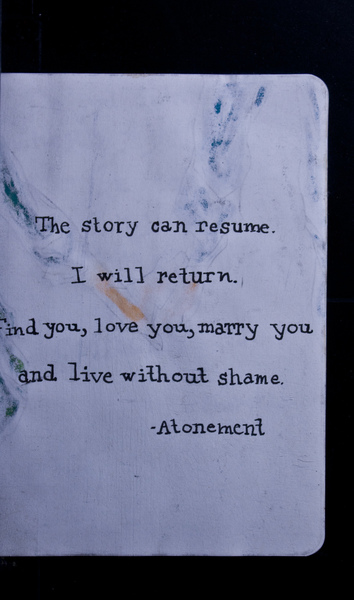 The story can resume.
I will return.
Find you, love you, marry you
and live without shame.
-Atonement